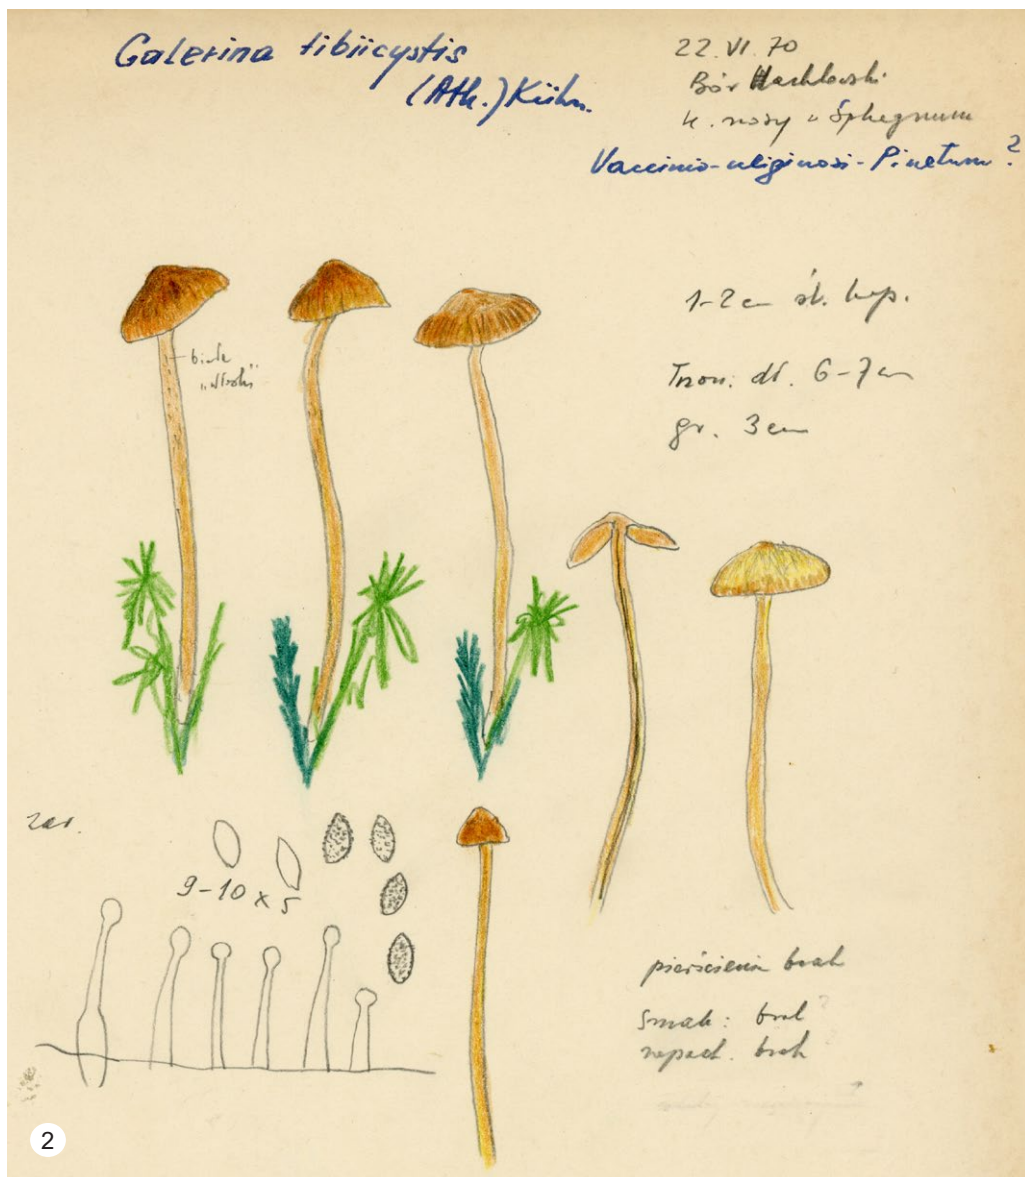 Galerina tibiicystis
(Atk.) Kühn.
22.VI.70
Bór
Sphagnum
Vaccinio-uliginosi-Pinetum ?
1-2 cm śr. kap.
białe
Trzon: dł. 6-7 cm
gr. 3 cm
zar.
9-10 x 5
pierścienia brak
smak: brak ?
zapach. brak
2